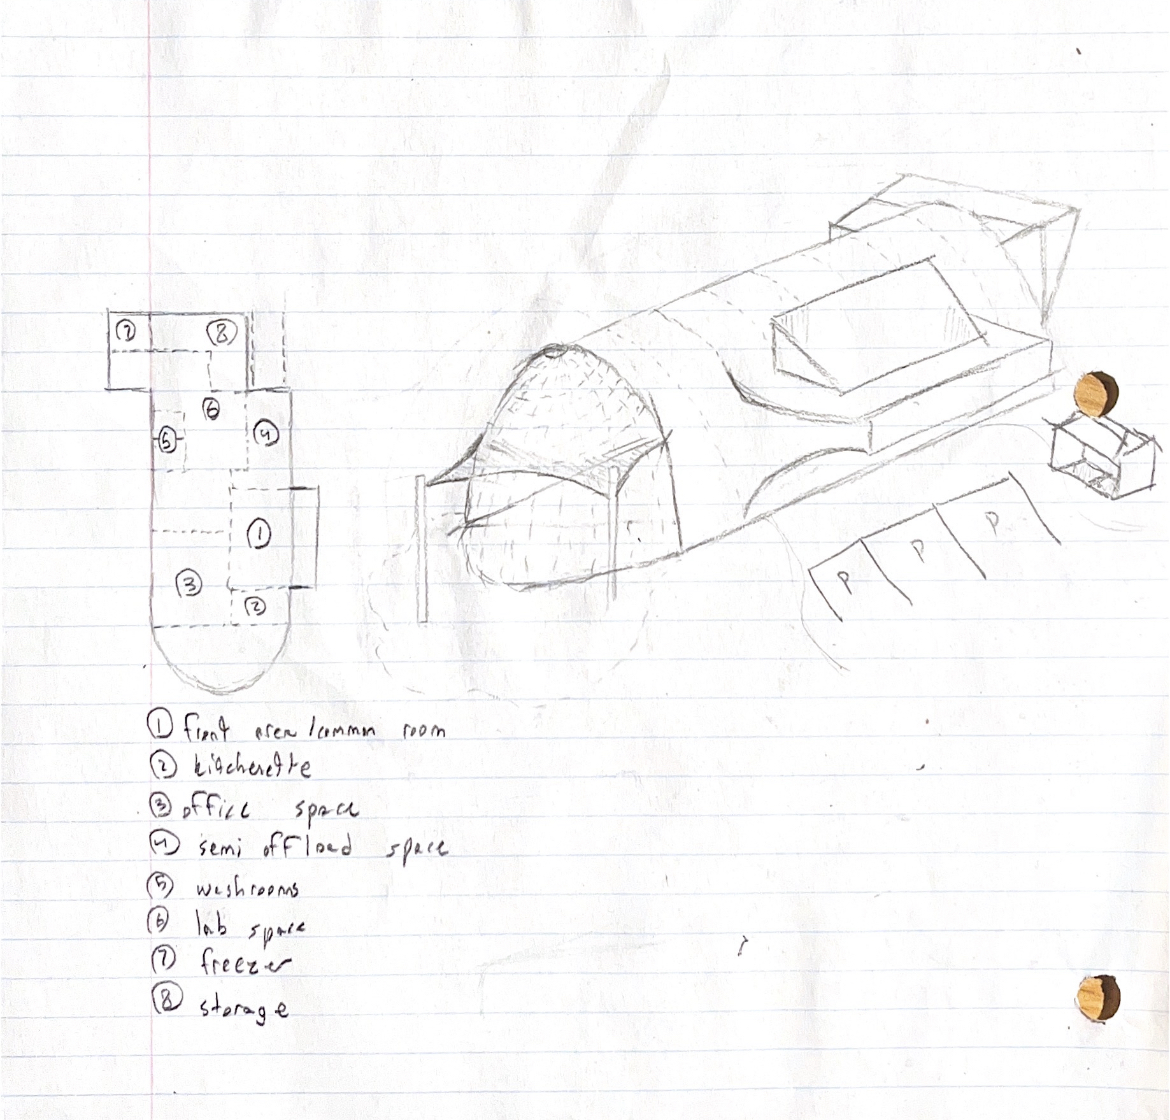 7 8
6
5 4
1
3
2
P P P
① front area /common room
② kitchenette
③ office space
④ semi offload space
⑤ washrooms
⑥ lab space
⑦ freezer
⑧ storage